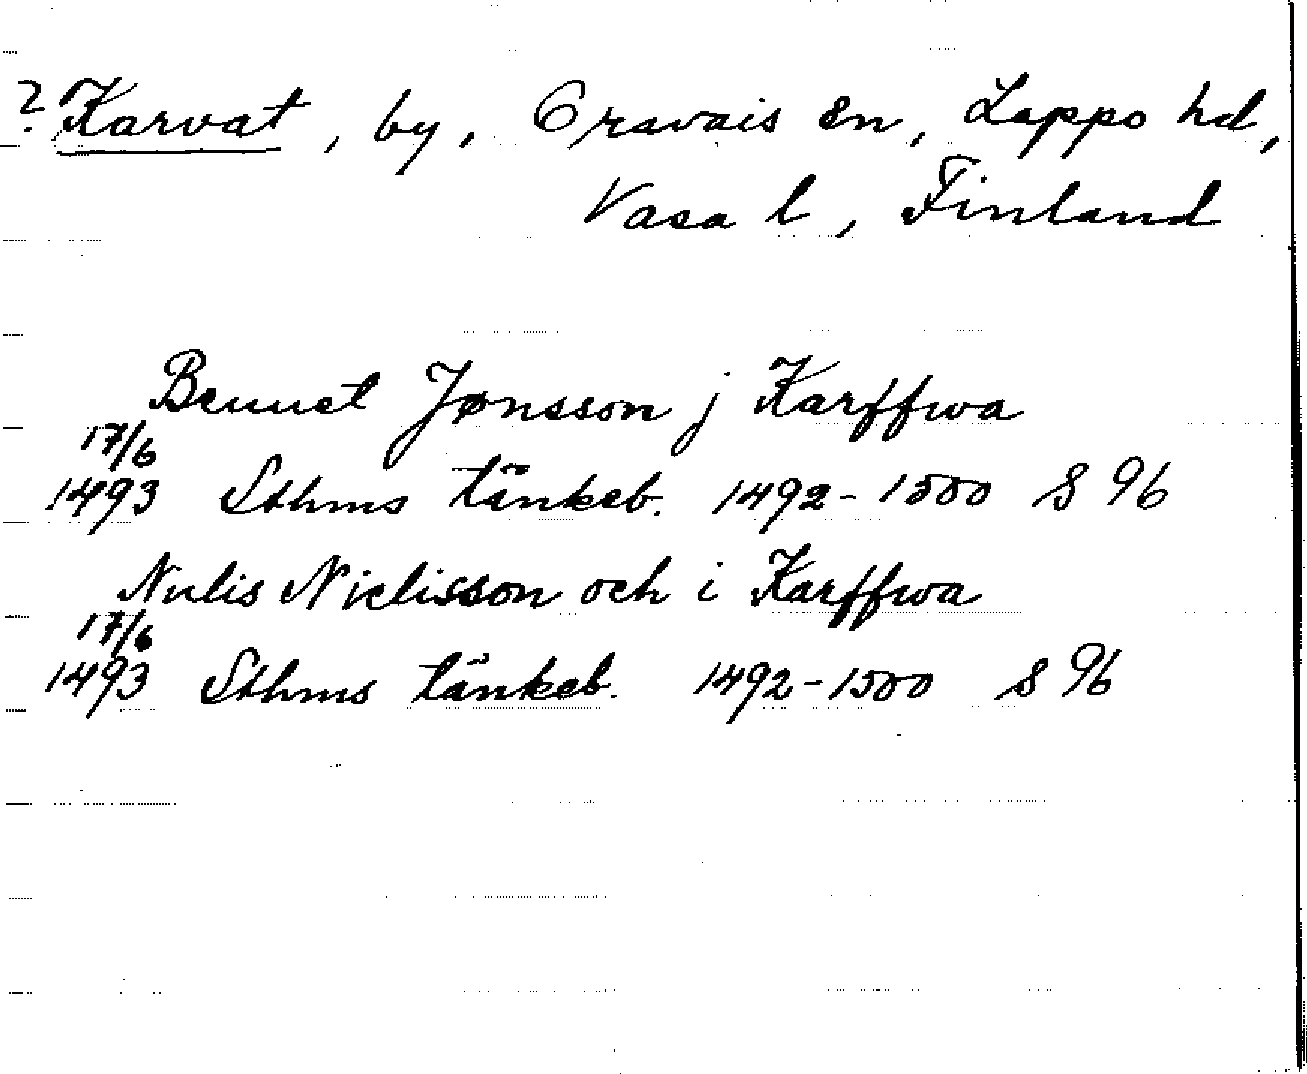 ? Karvat, by, Oravais sn, Lappo hd,
Vasa l, Finland
Bennet Jønsson j Karffwa
17/6
1493 Sthms tänkeb. 1492-1500 S 96
Niclis Niclisson och i Karffwa
17/6
1493 Sthms tänkeb. 1492-1500 S 96